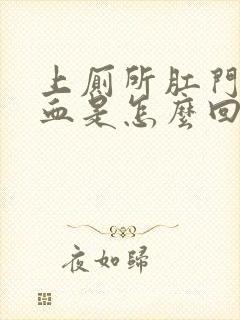 上厕所肛門
血是怎麼回
夜如歸